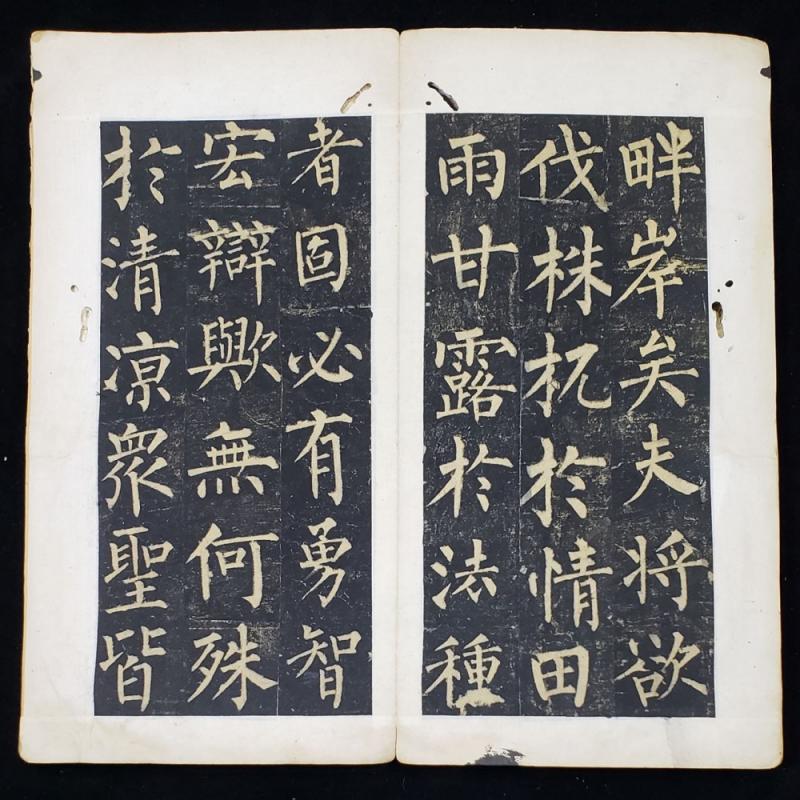 畔岸矣夫将欲
伐株杌於情田
雨甘露於法種
者固必有勇智
宏辯歟無何殊
於清凉衆聖皆